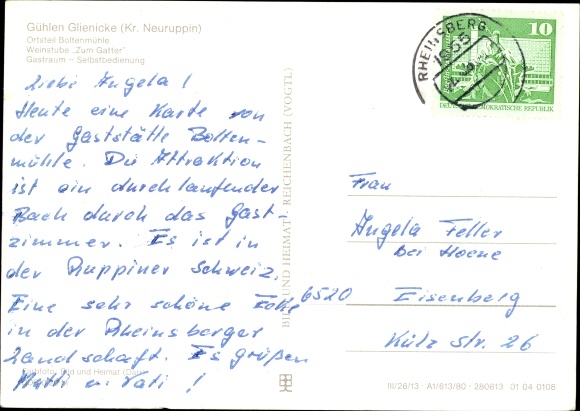 Gühlen Glienicke (Kr. Neuruppin)
Ortsteil Boltenmühle
Weinstube „Zum Gatter"
Gastraum – Selbstbedienung
Liebe Angela!
Heute eine Karte von
der Gaststätte Bolten-
mühle. Die Attraktion
ist ein durchlaufender
Bach durch das Gast-
zimmer. Es ist in
der Ruppiner Schweiz.
Eine sehr schöne Ecke
in der Rheinsberger
Landschaft. Es grüßen
Mutti u. Vati!
Bild und Heimat
BILD UND HEIMAT REICHENBACH (VOGTL)
RHEINSBERG
1955
10
DEUTSCHE DEMOKRATISCHE REPUBLIK
Frau
Angela Feller
bei Hoene
6520 Eisenberg
Külz Str. 26
III/26/13 · A1/613/80 · 280613 01 04 0108